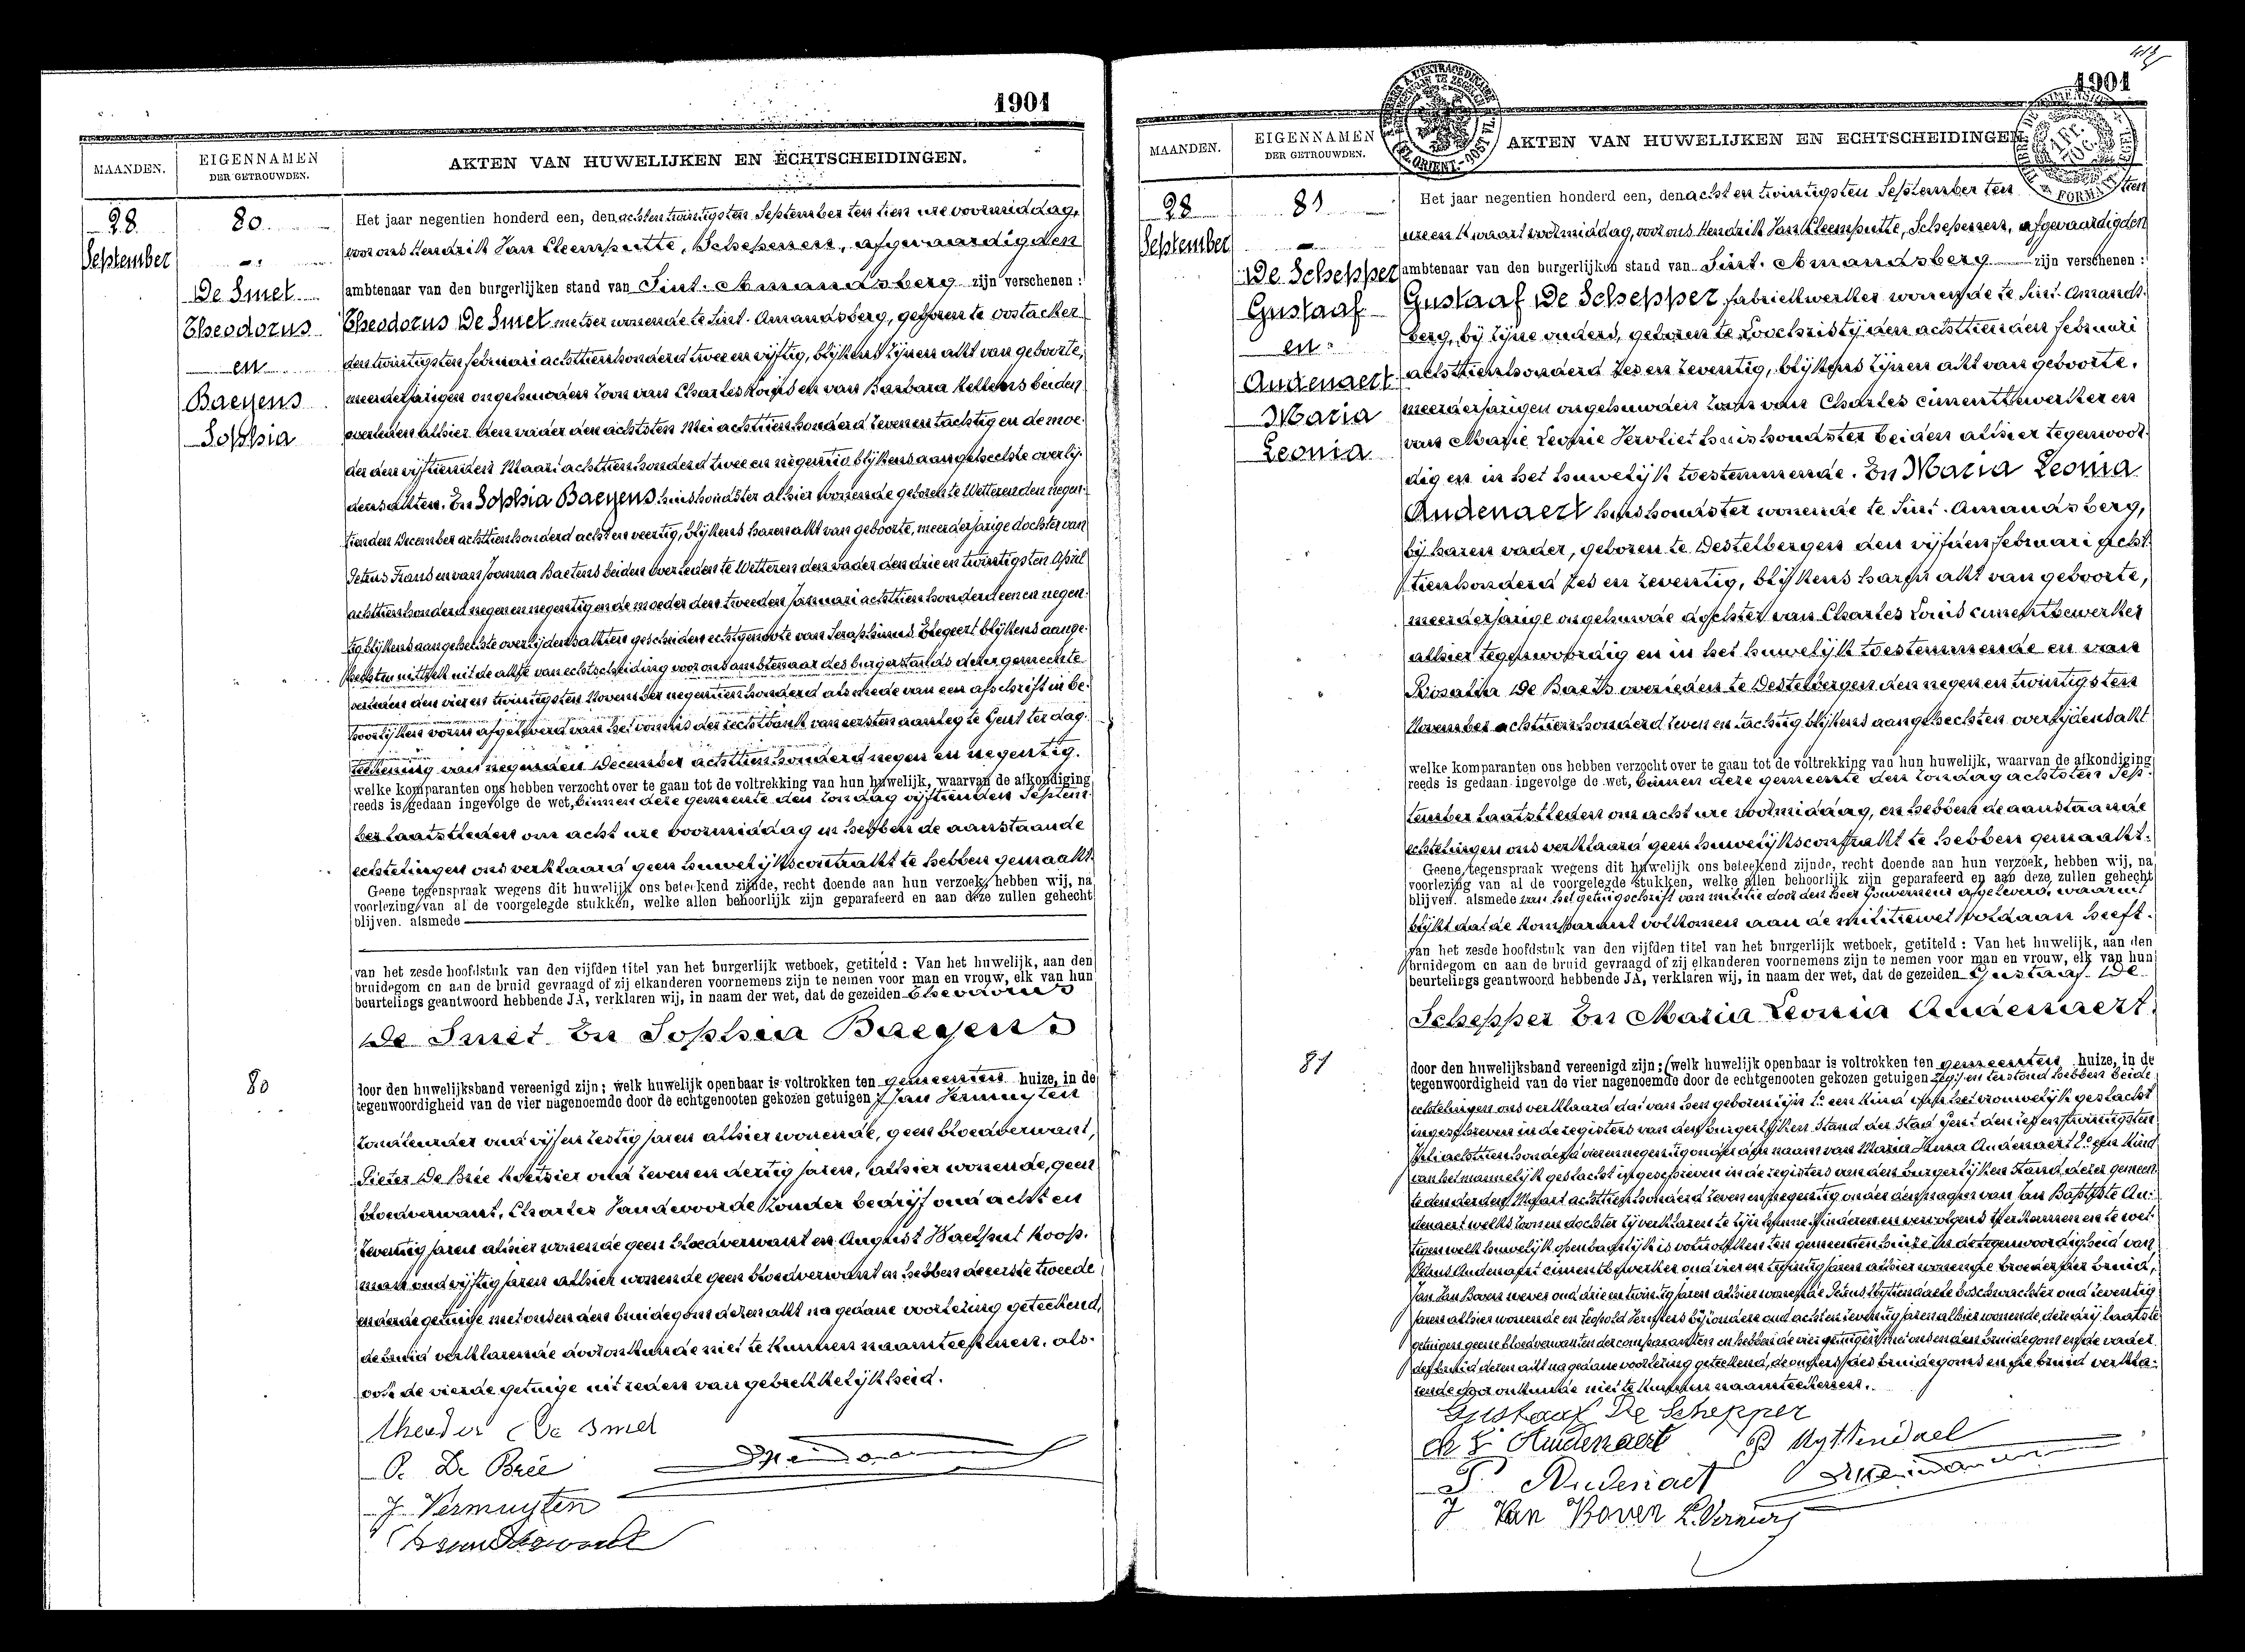 1901
MAANDEN.
EIGENNAMEN
DER GETROUWDEN.
AKTEN VAN HUWELIJKEN EN ECHTSCHEIDINGEN.
28
September
80
De Smet
Theodorus
en
Baeyens
Sophia
Het jaar negentien honderd een, den achtentwintigsten September ten tien ure voormiddag,
voor ons Hendrik Van Cleemputte, Schepenen, afgevaardigden
ambtenaar van den burgerlijken stand van Sint-Amandsberg zijn verschenen :
Theodorus De Smet metser wonende te Sint-Amandsberg, geboren te Oostacker
den twintigsten februari achttienhonderd twee en vijftig, blijkens zijnen akt van geboorte,
meerderjarigen ongehuwden zoon van Charles Louis en van Barbara beiden
overleden alhier den vader den achtsten Mei achttienhonderd zeven en tachtig en de moe-
der den vijftienden Maart achttienhonderd twee en negentig blijkens aangehechte overlij-
densakten. En Sophia Baeyens huishoudster alhier wonende geboren te Wetteren den negen-
tienden December achttienhonderd acht en veertig, blijkens haren akt van geboorte, meerderjarige dochter van
Petrus Frans en van Joanna Baetens beiden overleden te Wetteren den vader den drie en twintigsten April
achttienhonderd negen en negentig en de moeder den tweeden Januari achttienhonderd een en negen-
tig blijkens aangehechte overlijdensakten gescheiden echtgenoote van Seraphinus blijkens aange-
hechten uittrek uit de akte van echtscheiding voor ons ambtenaar des burgerstands dezer gemeente
verleden den vier en twintigsten November negentienhonderd alsmede van een afschrift in be-
hoorlijken vorm afgeleverd van het vonnis der rechtbank van eersten aanleg te Gent ter dag-
teekening van negenden December achttienhonderd negen en negentig.
welke komparanten ons hebben verzocht over te gaan tot de voltrekking van hun huwelijk, waarvan de afkondiging
reeds is gedaan ingevolge de wet, binnen deze gemeente den zondag vijftienden Septem-
ber laatstleden om acht ure voormiddag en hebben de aanstaande
echtelingen ons verklaard geen huwelijkscontrakt te hebben gemaakt.
Geene tegenspraak wegens dit huwelijk ons beteekend zijnde, recht doende aan hun verzoek, hebben wij, na
voorlezing van al de voorgelegde stukken, welke allen behoorlijk zijn geparafeerd en aan deze zullen gehecht
blijven. alsmede
van het zesde hoofdstuk van den vijfden titel van het burgerlijk wetboek, getiteld : Van het huwelijk, aan den
bruidegom en aan de bruid gevraagd of zij elkanderen voornemens zijn te nemen voor man en vrouw, elk van hun
beurtelings geantwoord hebbende JA, verklaren wij, in naam der wet, dat de gezeiden Theodorus
De Smet En Sophia Baeyens
80
door den huwelijksband vereenigd zijn; welk huwelijk openbaar is voltrokken ten gemeenten huize, in de
tegenwoordigheid van de vier nagenoemde door de echtgenooten gekozen getuigen Jan Vermuyten
oud vijf en zestig jaren alhier wonende, geen bloedverwant,
Pieter De Brée koetsier oud zeven en dertig jaren, alhier wonende, geen
bloedverwant, Charles Vandewoorde zonder bedrijf oud acht en
zeventig jaren alhier wonende geen bloedverwant en August Koop-
man oud vijftig jaren alhier wonende geen bloedverwant en hebben de eerste tweede
en derde getuige met ons en den bruidegom dezen akt na gedane voorlezing geteekend,
de bruid verklarende door onkunde niet te kunnen naamteekenen, als-
ook de vierde getuige uit reden van gebrekkelijkheid.
Theodor De Smet
P. De Brée
J Vermuyten
1901
MAANDEN.
EIGENNAMEN
DER GETROUWDEN.
AKTEN VAN HUWELIJKEN EN ECHTSCHEIDINGEN
28
September
81
De Schepper
Gustaaf
en
Audenaert
Maria
Leonia
Het jaar negentien honderd een, den acht en twintigsten September ten tien
ure en kwaart voormiddag, voor ons Hendrik Van Cleemputte, Schepenen, afgevaardigden
ambtenaar van den burgerlijken stand van Sint-Amandsberg zijn verschenen :
Gustaaf De Schepper, fabriekwerker wonende te Sint-Amands-
berg, bij zijne ouders, geboren te Loochristij den achttienden februari
achttienhonderd zes en zeventig, blijkens zijnen akt van geboorte,
meerderjarigen ongehuwden zoon van Charles cimentbewerker en
van Marie Leonie Vervliet huishoudster beiden alhier tegenwoor-
dig en in het huwelijk toestemmende. En Maria Leonia
Audenaert huishoudster wonende te Sint-Amandsberg,
bij haren vader, geboren te Destelbergen den vijfden februari acht-
tienhonderd zes en zeventig, blijkens haren akt van geboorte,
meerderjarige ongehuwde dochter van Charles Louis cimentbewerker
alhier tegenwoordig en in het huwelijk toestemmende en van
Rosalia De Baets overleden te Destelbergen den negen en twintigsten
November achttienhonderd zeven en tachtig blijkens aangehechten overlijdensakt
welke komparanten ons hebben verzocht over te gaan tot de voltrekking van hun huwelijk, waarvan de afkondiging
reeds is gedaan ingevolge de wet, binnen deze gemeente den zondag achtsten Sep-
tember laatstleden om acht ure voormiddag, en hebben de aanstaande
echtelingen ons verklaard geen huwelijkscontrakt te hebben gemaakt.
Geene tegenspraak wegens dit huwelijk ons beteekend zijnde, recht doende aan hun verzoek, hebben wij, na
voorlezing van al de voorgelegde stukken, welke allen behoorlijk zijn geparafeerd en aan deze zullen gehecht
blijven. alsmede van het getuigschrift van militie door den heer Gouverneur afgeleverd, waaruit
blijkt dat de komparant volkomen aan de militiewet voldaan heeft.
van het zesde hoofdstuk van den vijfden titel van het burgerlijk wetboek, getiteld : Van het huwelijk, aan den
bruidegom en aan de bruid gevraagd of zij elkanderen voornemens zijn te nemen voor man en vrouw, elk van hun
beurtelings geantwoord hebbende JA, verklaren wij, in naam der wet, dat de gezeiden Gustaaf De
Schepper En Maria Leonia Audenaert
81
door den huwelijksband vereenigd zijn; (welk huwelijk openbaar is voltrokken ten gemeenten huize, in de
tegenwoordigheid van de vier nagenoemde door de echtgenooten gekozen getuigen en terstond hebben beide
echtelingen ons verklaard dat van hen geboren zijn 1° een kind van het vrouwelijk geslacht
ingeschreven in de registers van den burgerlijken stand der stad Gent den
achttienhonderd vier en negentig onder den naam van Maria Audenaert 2° een kind
van het mannelijk geslacht ingeschreven in de registers van den burgerlijken stand dezer gemeen-
te den derden Maart achttienhonderd zeven en negentig onder den naam van Jan Baptiste Au-
denaert welks zoon en dochter zij verklaren te zijn hunne kinderen en vervolgens te erkennen en te wet-
tigen welk huwelijk openbaarlijk is voltrokken ten gemeentenhuize in de tegenwoordigheid van
Petrus Audenaert cimentbewerker oud vier en twintig jaren alhier wonende broeder der bruid,
Jan Van Boven wever oud drie en twintig jaren alhier wonende Petrus Uyttendaele boschwachter oud zeventig
jaren alhier wonende en Leopold bijzondere oud acht en zeventig jaren alhier wonende, deze drij laatste
getuigen geene bloedverwanten der comparanten en hebben de vier getuigen met ons en den bruidegom en de vader
der bruid dezen akt na gedane voorlezing geteekend, de ouders des bruidegoms en de bruid verkla-
rende door onkunde niet te kunnen naamteekenen.
Gustaaf De Schepper
Ch L Audenaert P Uyttendael
P Audenaet
J Van Boven